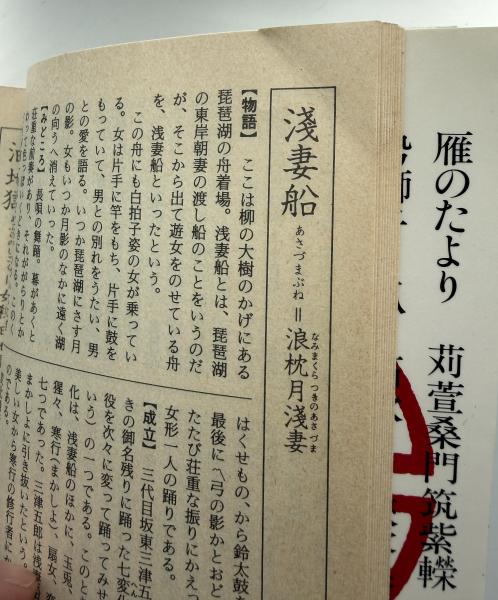 雁のたより
苅萱桑門筑紫𨏍
淺妻船
あさづまぶね
=
浪枕月淺妻
なみまくらつきのあさづま
【物語】 ここは柳の大樹のかげにある
琵琶湖の舟着場。浅妻船とは、琵琶湖
の東岸朝妻の渡し船のことをいうのだ
が、そこから出て遊女をのせている舟
を、浅妻船といったという。
この舟にも白拍子姿の女が乗ってい
る。女は片手に竿をもち、片手に鼓を
もっていて、男との別れをうたい、男
との愛を語る。いつか琵琶湖にさす月
の影。女もいつか月影のなかに遠く湖
の向うへ消えていった。
【みどころ】 長唄の舞踊。幕があくと
荘重な前奏があり、それががらりとか
はくせもの、から鈴太鼓を
最後に〽弓の影かとおど
たたび荘重な振りにかえっ
女形一人の踊りである。
【成立】 三代目坂東三津五
きの御名残りに踊った七変化
へん
役を次々に変って踊ってみせ
いう)の一つである。このと
化は、浅妻船のほかに、玉兎、
猩々、寒行(まかしょ)、扇女、
七つであった。三津五郎は浅妻
まかしょに引き抜いたという。
美しい女から寒行の修行者にか
のである。